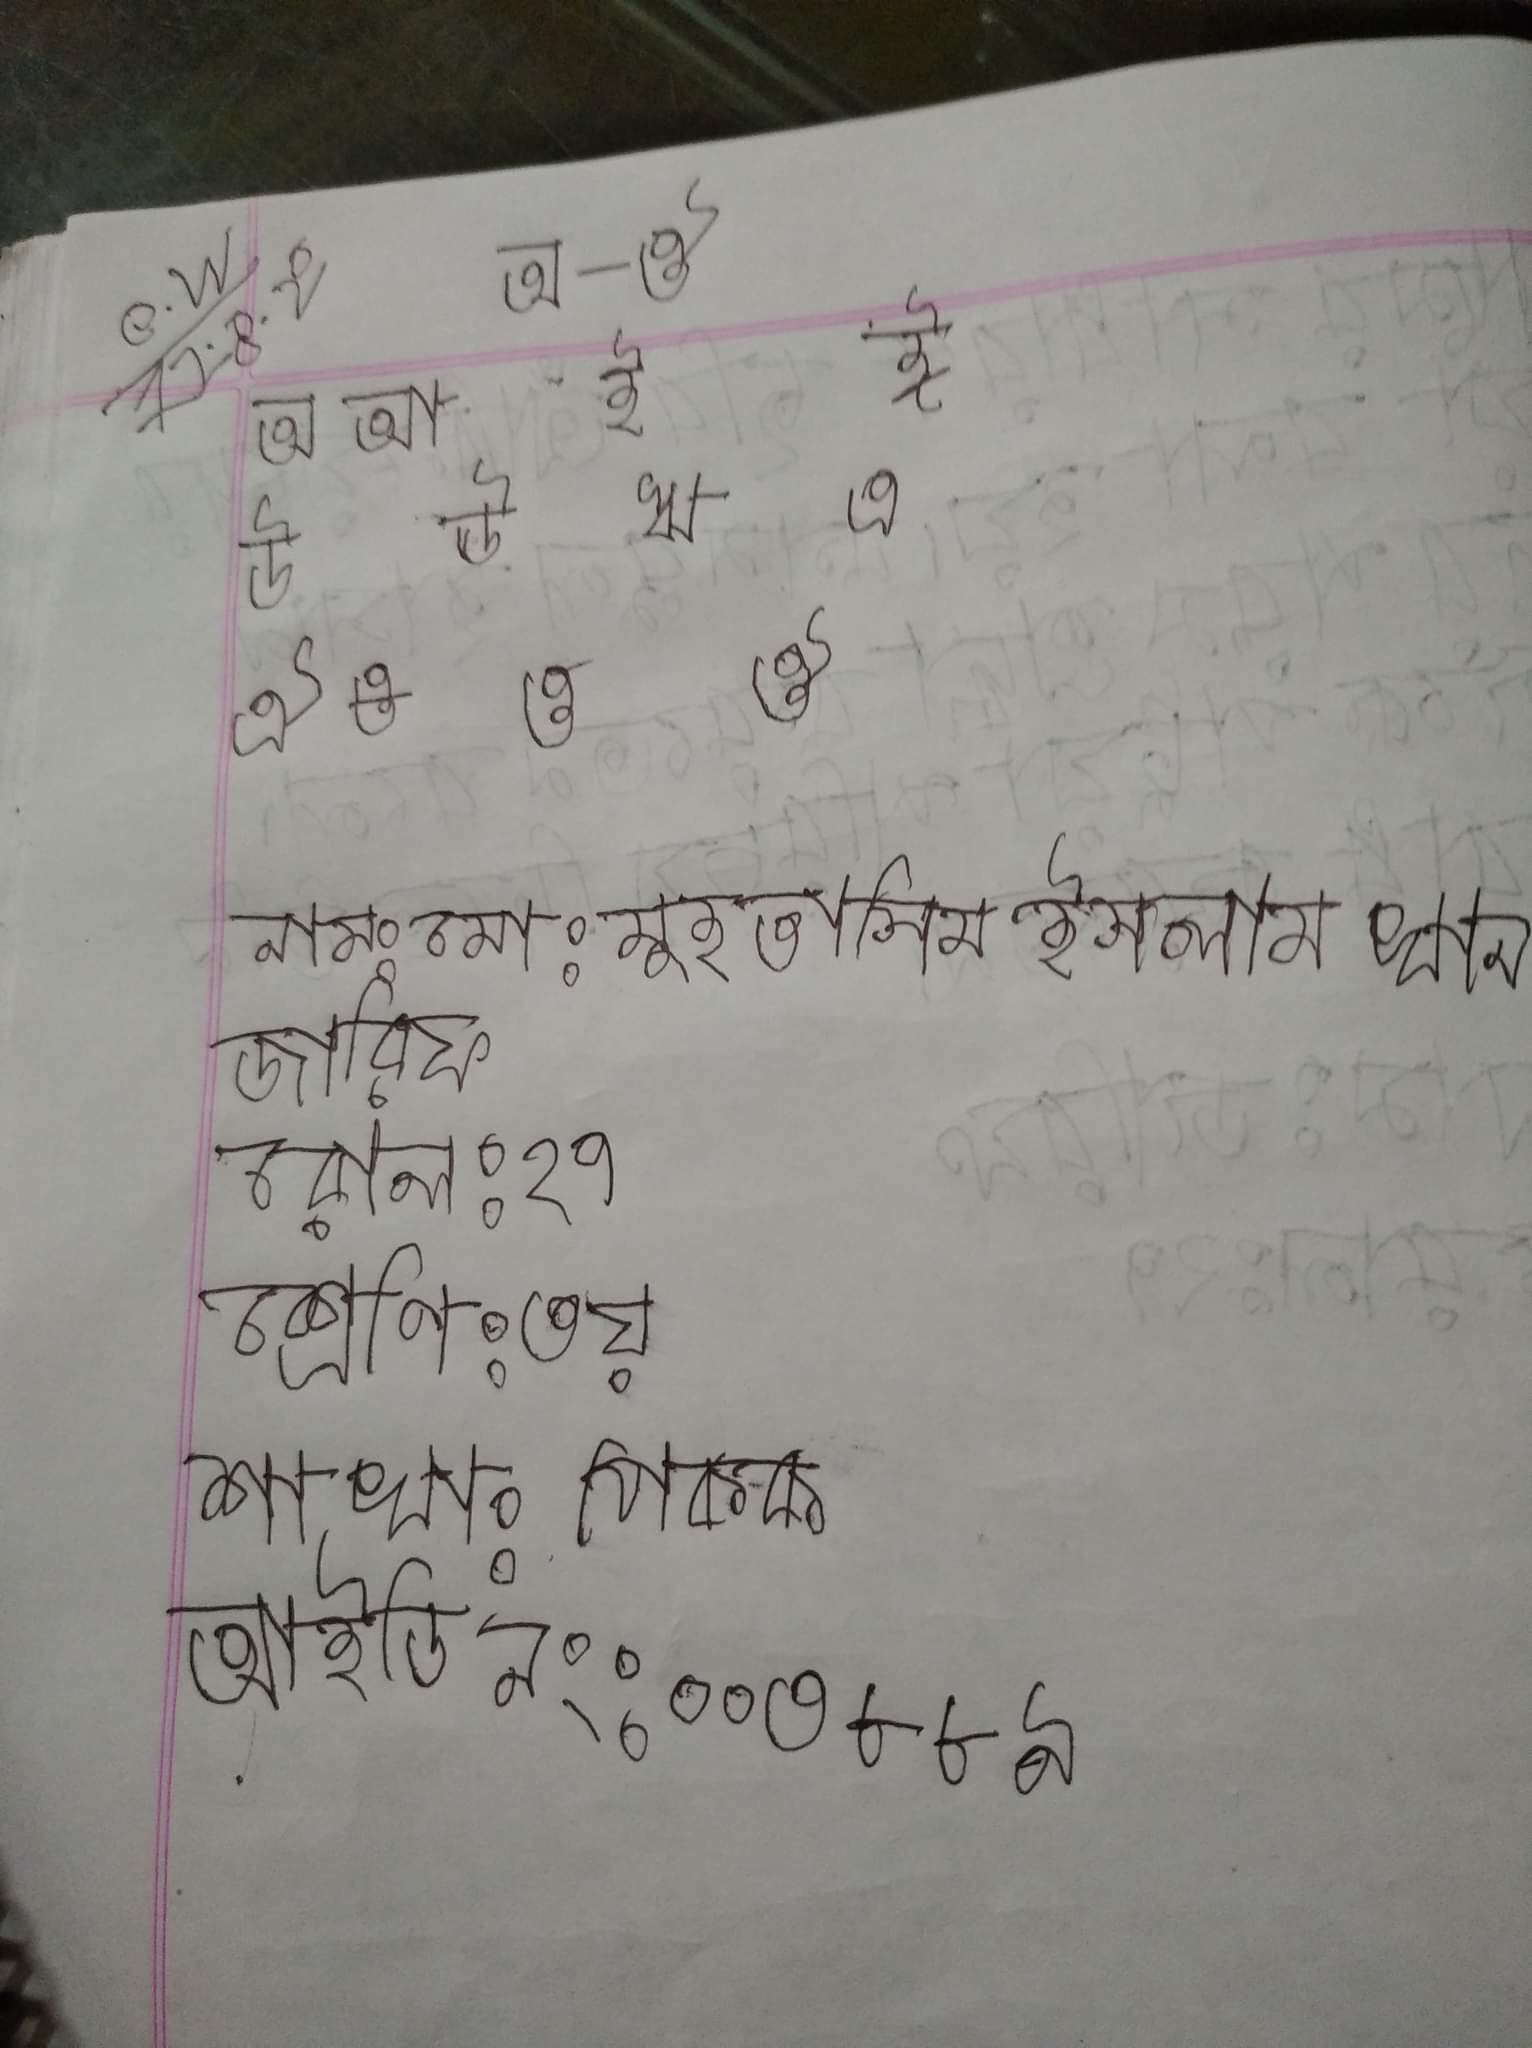 c.w
অ-ঔ
অ আ ই ঈ
উ ঊ ঋ এ
ঐ ও ও ঔ
নামঃ মোঃ মুহতাসিম ইসলাম খান
জারিফ
রোলঃ ২৭
শ্রেণিঃ ৩য়
শাখাঃ পিকক
আইডি নংঃ ০০৩৮৮৯